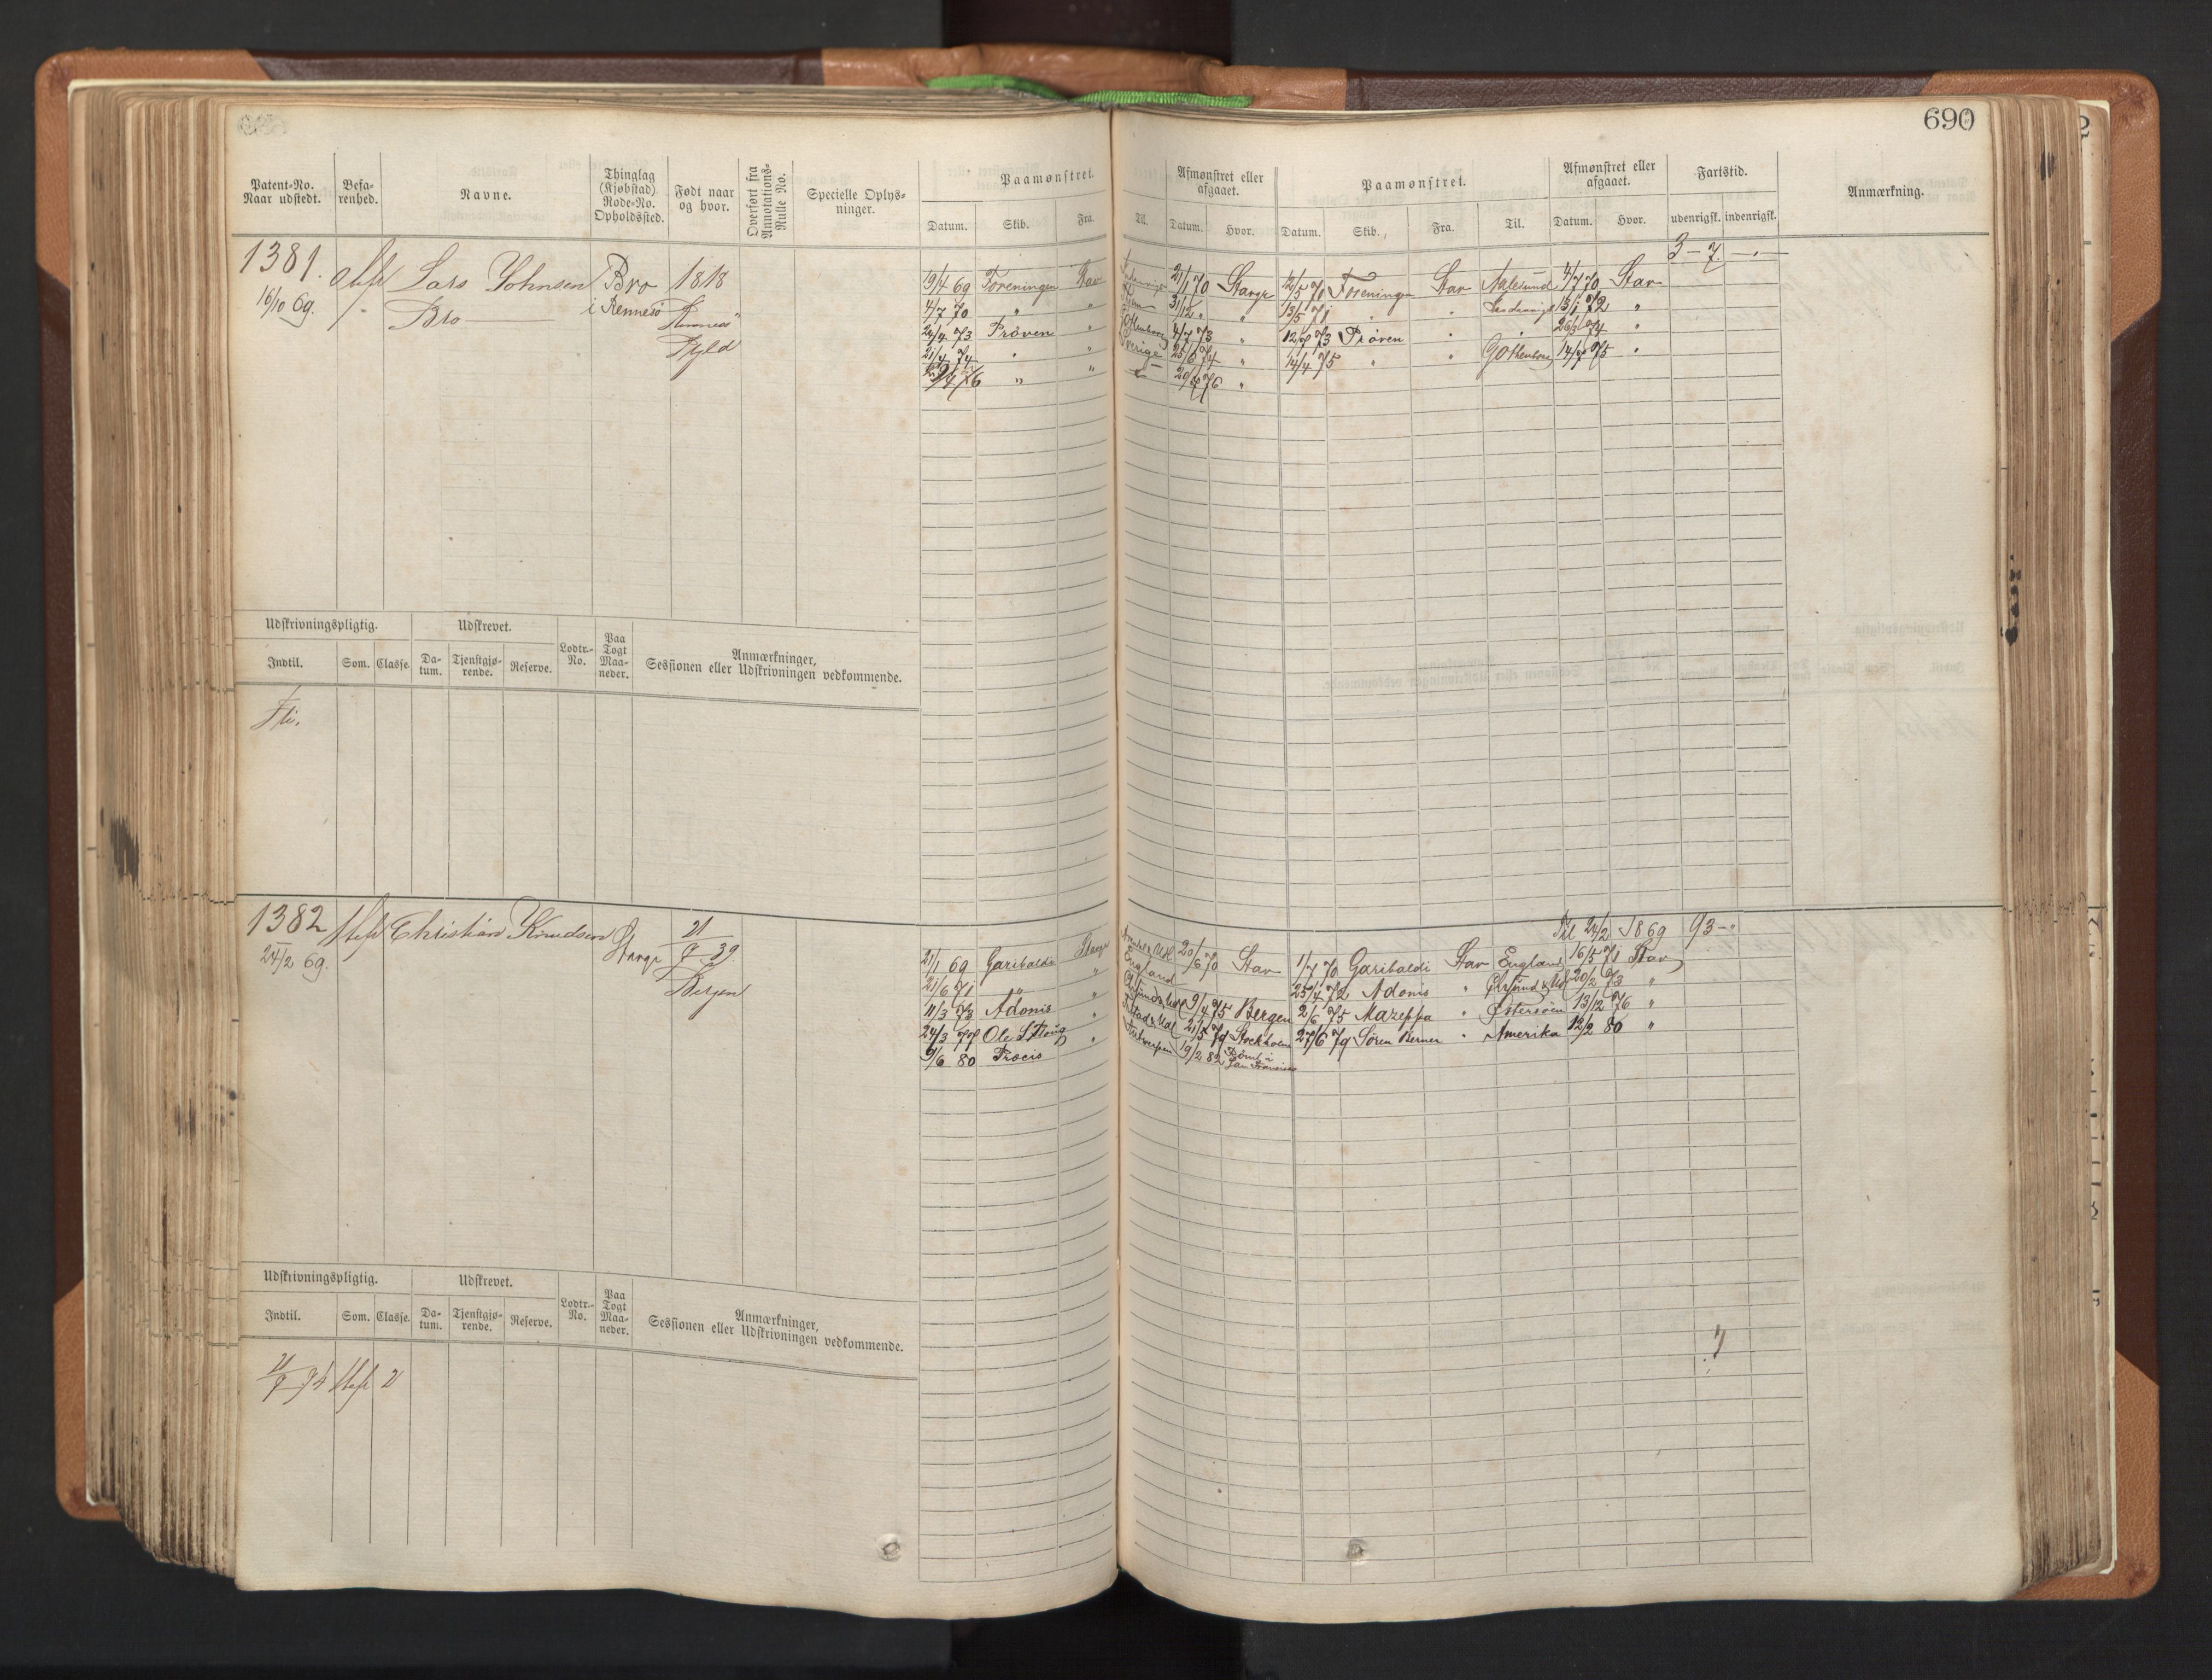 690
Patent-No. Naar udstedt.
Befa-renhed.
Navne.
Thinglag (Kjøbstad) Rode-No. Opholdssted.
Født naar og hvor.
Overført fra Annotations-Rulle No.
Specielle Oplys-ninger.
Paamønstret.
Datum. Skib. Fra. Til.
Afmønstret eller afgaaet.
Datum. Hvor.
Paamønstret.
Datum. Skib. Fra. Til.
Afmønstret eller afgaaet.
Datum. Hvor.
Fartstid.
udenrigsk. indenrigsk.
Anmærkning.
3 - 7.
1381. Lars Johnsen Bro 1818
16/10 69. Bro i Rennesø
19/4 69 Foreningen Stav 21/1 70 Stavgr 12/5 70 Foreningen Stav Aalesund 4/7 70 Stav
4/7 70 " " 31/12 " " 13/5 71 " " 13/1 72 "
24/4 73 Prøven " Gothenborg 4/7 73 " 12/8 73 Prøven " 26/1 74 "
21/4 74 " " Sverige 25/6 74 " 14/4 75 " " Gothenborg 14/8 75 "
76 " " 76 "
Udskrivningspligtig.
Udskrevet.
Lodtr.-No.
Paa Togt Maa-neder.
Anmærkninger, Sessionen eller Udskrivningen vedkommende.
Indtil. Som. Classe. Da-tum. Tjenstgjø-rende. Reserve.
1382 Christian Knudsen Stavgr 21/9 39
24/2 69. Bergen
Til 24/2 1869 93 - "
21/1 69 Garibaldi Stavgr 20/6 70 Stav 1/7 70 Garibaldi Stav England 16/5 71 Stav
21/6 71 " " England 25/4 72 Adonis " 20/2 73 "
11/3 73 Adonis " 9/4 75 Bergen 2/6 75 Mazeppa " Østersøen 13/12 76 "
24/3 77 Ole " 21/5 79 Stockholm 27/6 79 Søren Berner " Amerika 12/2 80 "
9/6 80 " Antwerpen 19/2 82 Rømt i San Francisco
Udskrivningspligtig.
Udskrevet.
Lodtr.-No.
Paa Togt Maa-neder.
Anmærkninger, Sessionen eller Udskrivningen vedkommende.
Indtil. Som. Classe. Da-tum. Tjenstgjø-rende. Reserve.
2